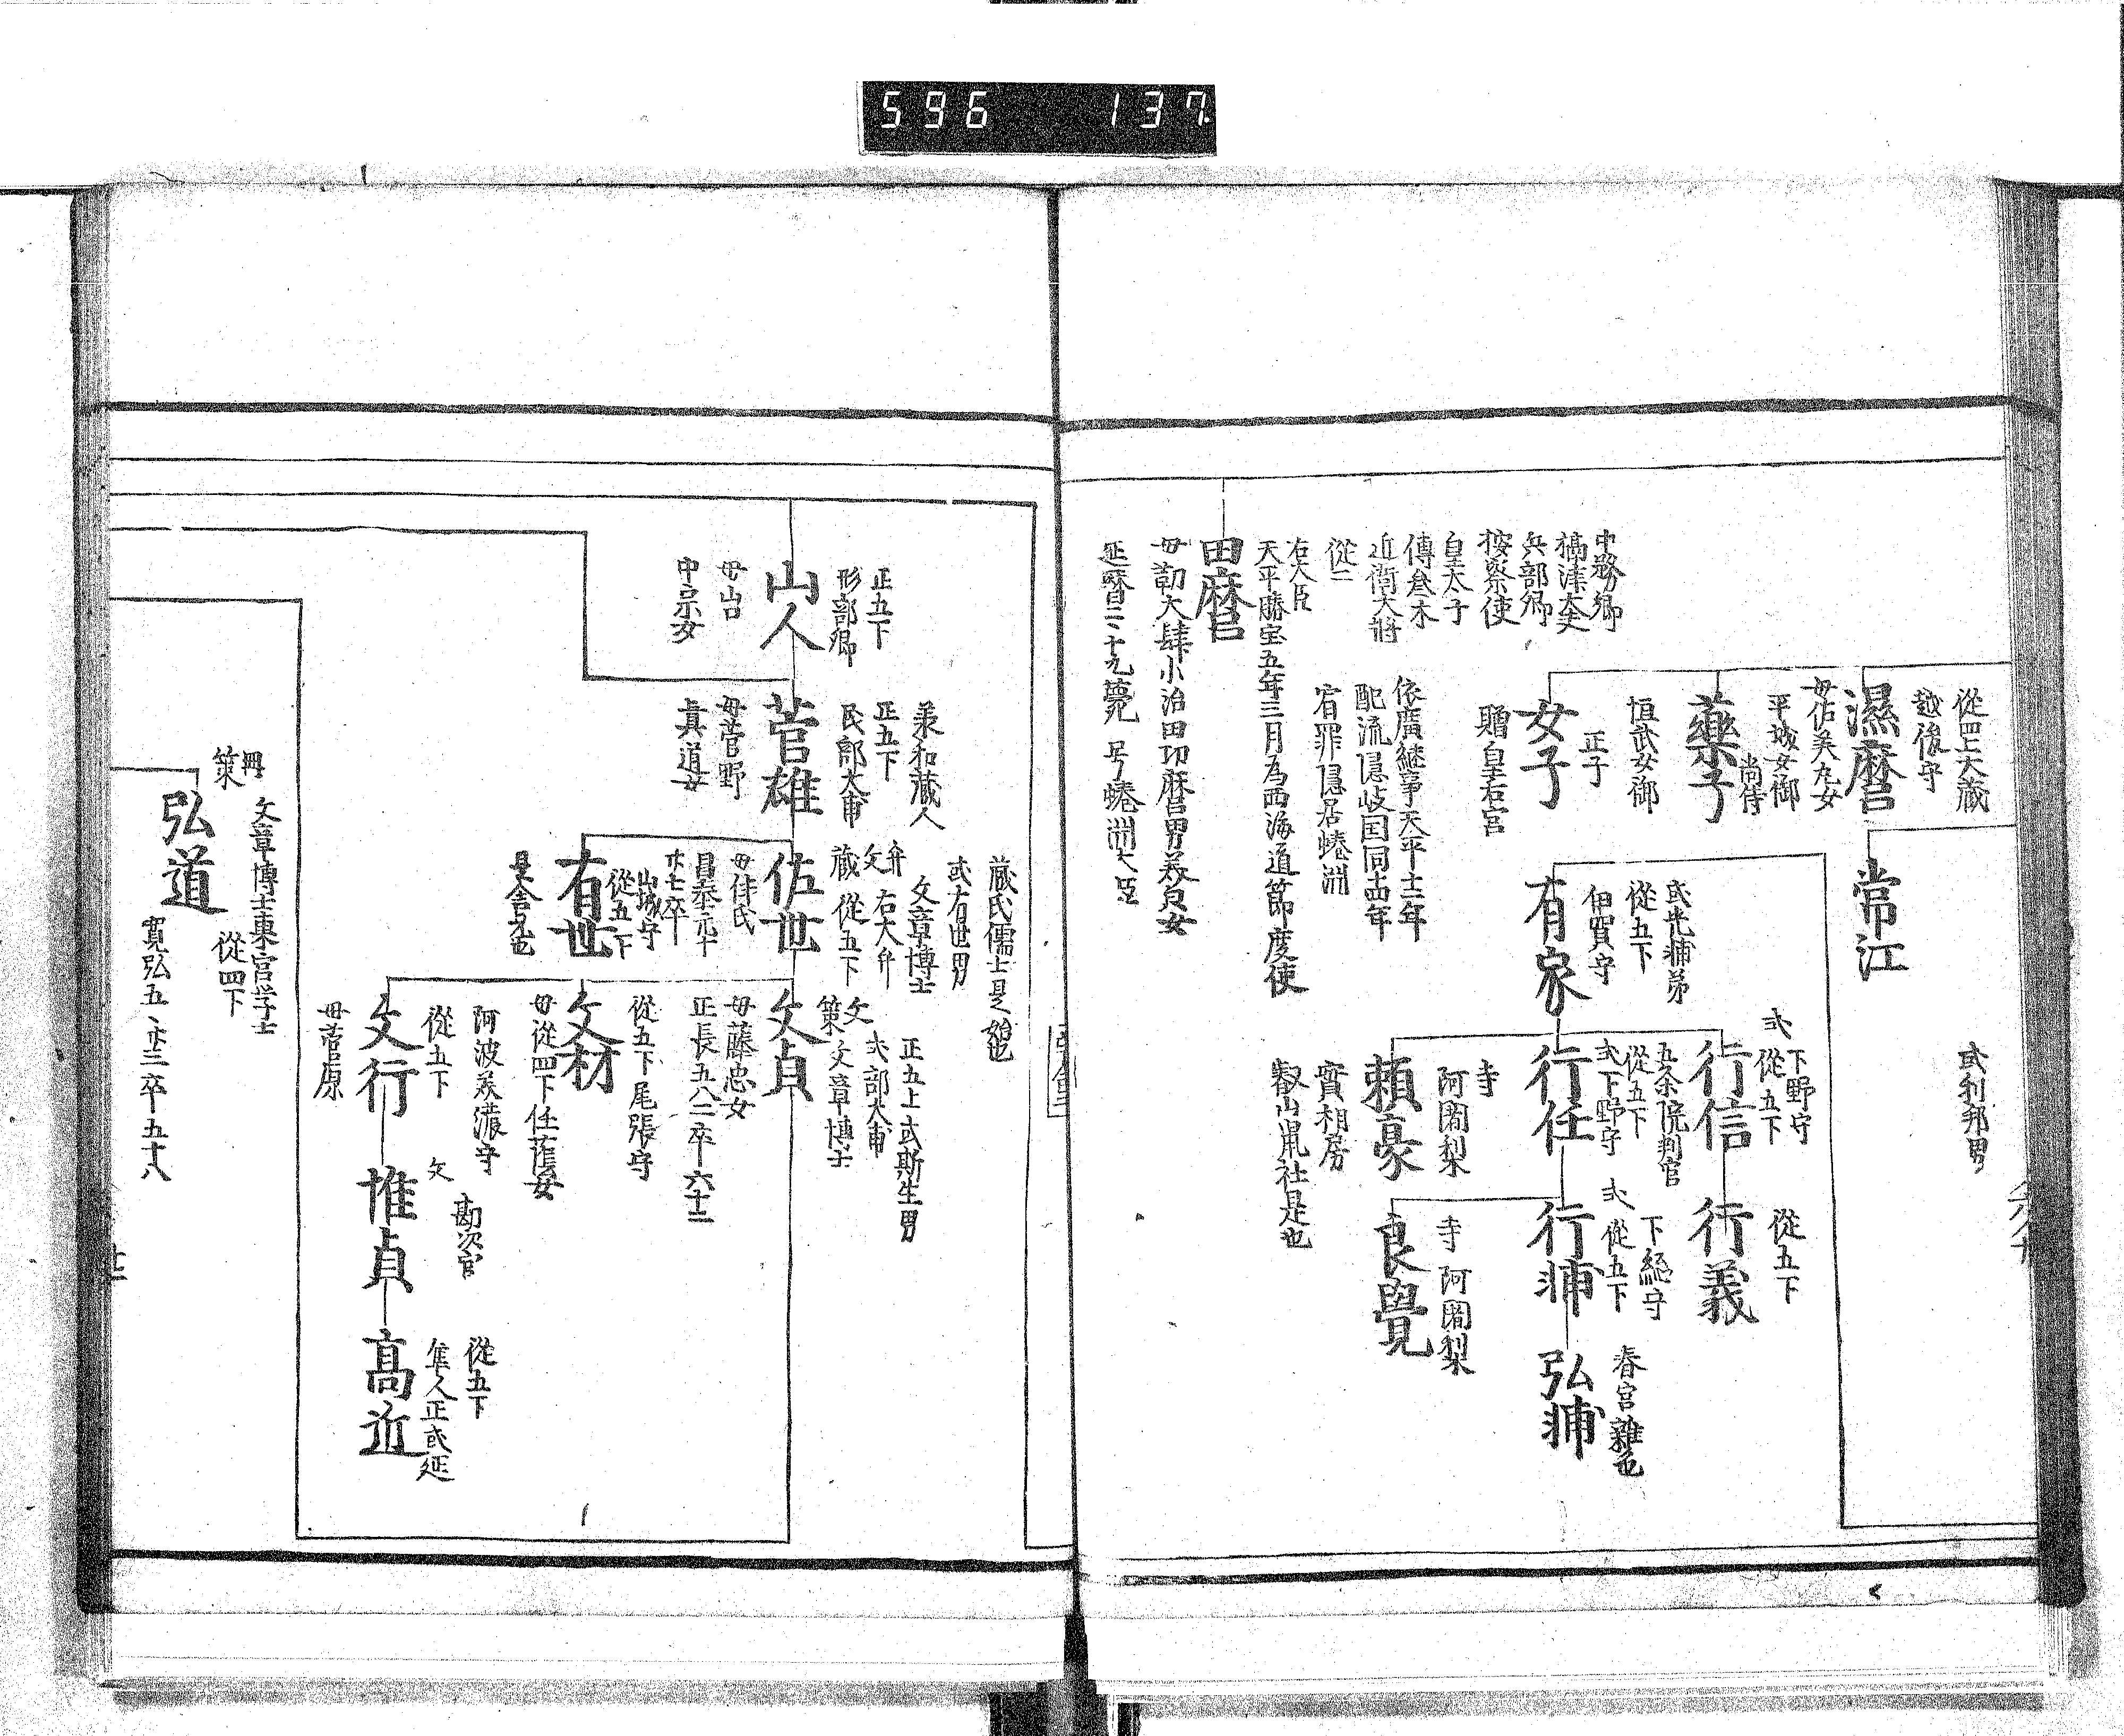 596 137
從四上大蔵
越後守
濕麿
母佐美丸女
平城女御
尚侍
藥子
恒武女御
正子
女子
贈皇右宮
常江
或利邦男
或光輔弟
從五下
伯賀守
有家
下野守
從五下
式
行信
從五下
行義
五条院判官
從五下
式下野守
行任
下総守
從五下
式
行輔
春宮雜色
弘輔
寺
阿闍梨
頼豪
實相房
叡山鼠社是也
寺 阿闍梨
良覺
中務卿
攝津大夫
兵部卿
按察使
皇太子
傳叅木
近衛大將
從二
右大臣
依廣継事天平十二年
配流隠岐国同十四年
宥罪隠居蜷淵
天平勝宝五年三月為西海道節度使
田麿
母勒大肆小治田功麿男美貞女
延暦二二十九薨 号蜷淵大臣
正五下
形部卿
山人
母山口
中宗女
羕和蔵人
正五下
民部大甫
菅雄
母菅野
真道女
蔵氏儒士是始也
或有世男
文章博士
右大弁
弁
文
蔵 從五下
佐世
母侍氏
昌泰元十
廿七卒
山城守
從五下
有世
是舍兄也
正五上或斯生男
式部大甫
文章博士
文
策
文貞
母藤忠女
正長五八二卒六十二
從五下尾張守
文材
母從四下任蔭女
阿波美濃守
從五下
文行
母菅原
文
勘次官
惟貞
從五下
隼人正或延
高近
文章博士東宮学士
從四下
策
弘道
寛弘五、廿二卒五十八